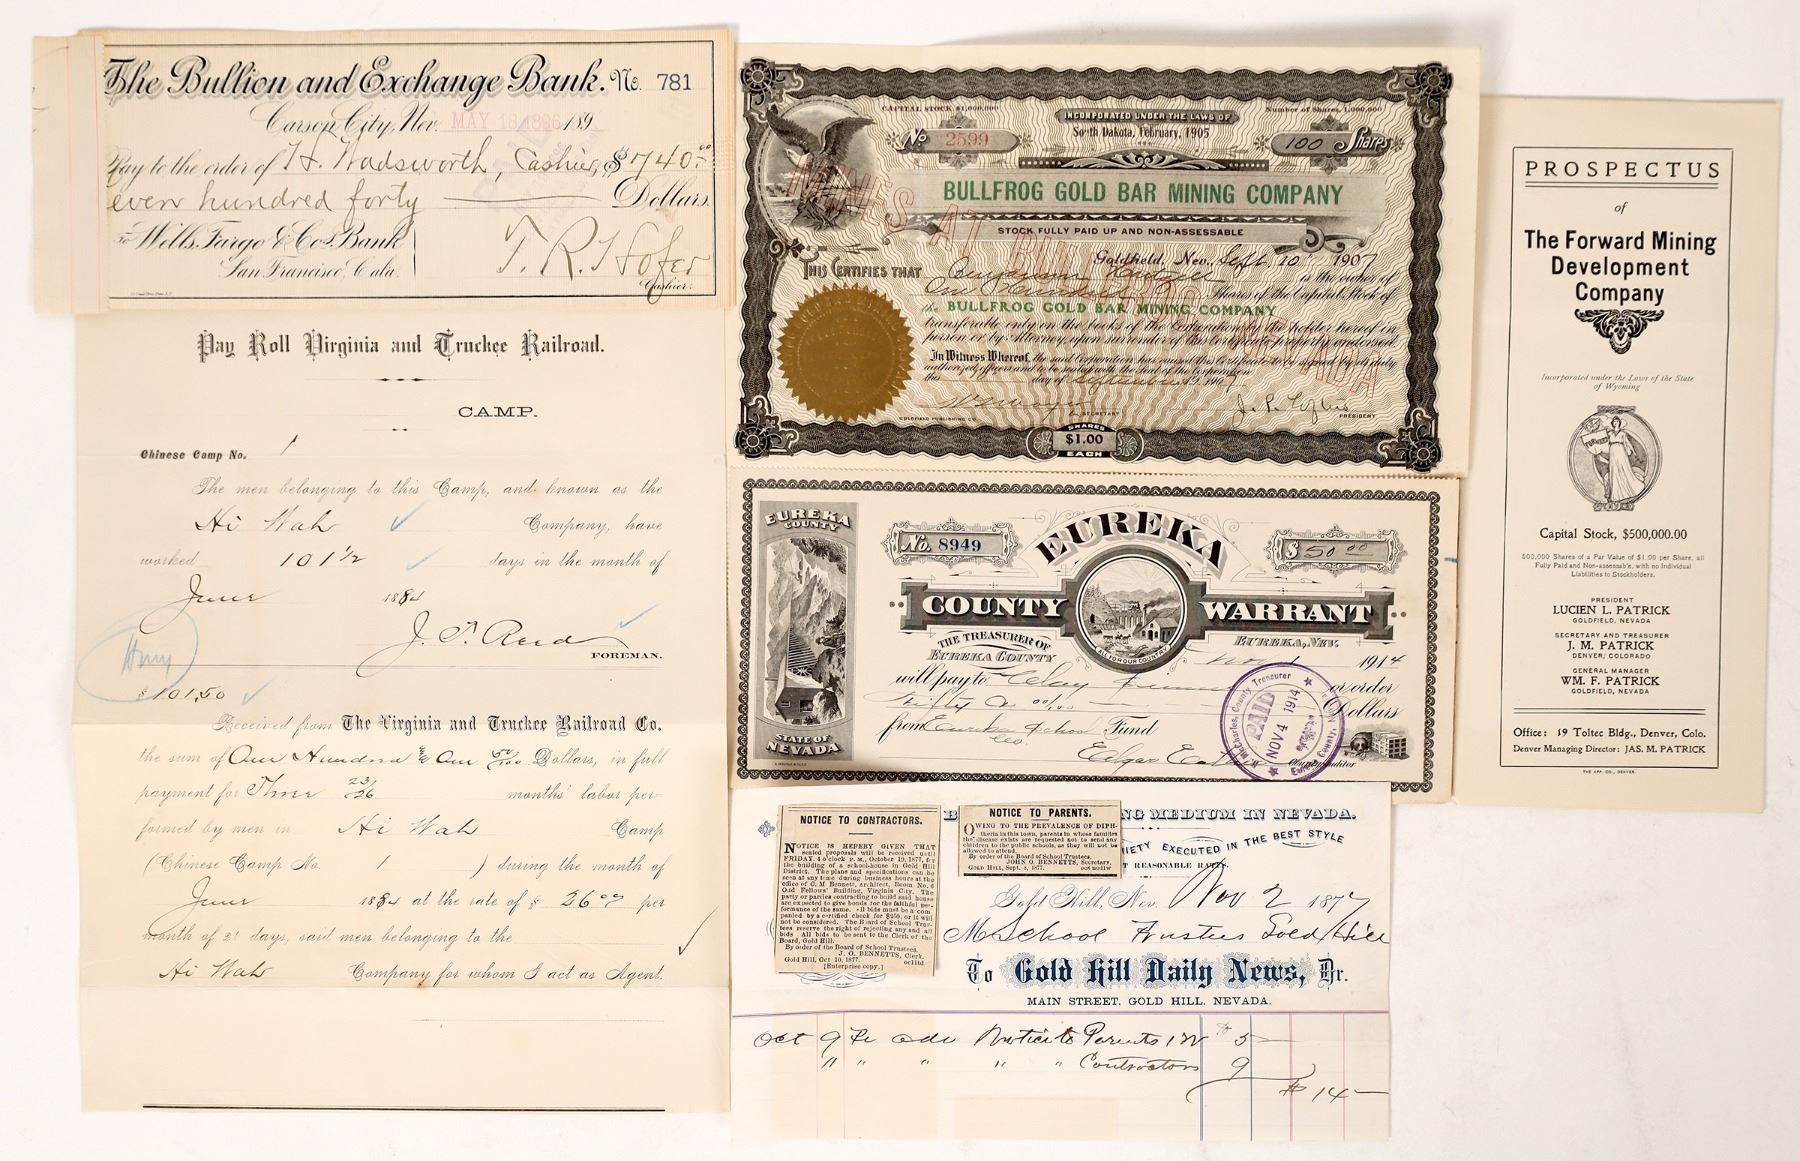 The Bullion and Exchange Bank. No. 781
Carson City, Nev. MAY 18 1896 189
Pay to the order of H. Wadsworth, Cashier, $740.00
even hundred forty Dollars.
To Wells, Fargo & Co's. Bank
San Francisco, Cala.
T. R. Hofer
Cashier.
Pay Roll Virginia and Truckee Railroad.
CAMP.
Chinese Camp No. 1
The men belonging to this Camp, and known as the
Hi Wah Company, have
worked 101 1/2 days in the month of
June 1884
FOREMAN.
$101.50
Received from The Virginia and Truckee Railroad Co.
the sum of One Hundred & One 50/100 Dollars, in full
payment for Three 23/26 months' labor per-
formed by men in Hi Wah Camp
(Chinese Camp No. 1 ) during the month of
June 1884 at the rate of $ 26.00 per
month of 21 days, said men belonging to the
Hi Wah Company for whom I act as Agent.
CAPITAL STOCK $1,000,000
INCORPORATED UNDER THE LAWS OF
South Dakota, February, 1905
Number of Shares, 1,000,000
No 2599
100 Shares
MINES AT BULLFROG NEVADA
BULLFROG GOLD BAR MINING COMPANY
STOCK FULLY PAID UP AND NON-ASSESSABLE
Goldfield, Nev., Sept. 10 1907
THIS CERTIFIES THAT Benjamin is the owner of
One Hundred Shares of the Capital Stock of
the BULLFROG GOLD BAR MINING COMPANY
transferable only on the books of the Corporation by the holder hereof in
person or by Attorney, upon surrender of this Certificate properly endorsed.
In Witness Whereof, the said Corporation has caused this Certificate to be signed by its duly
authorized officers and to be sealed with the Seal of the Corporation
this day of September 1907
SECRETARY
J. P. Loftus
PRESIDENT
GOLDFIELD PUBLISHING CO.
SHARES
$1.00
EACH
EUREKA
COUNTY
STATE OF
NEVADA
No. 8949
EUREKA
$50.00
COUNTY WARRANT
ALL FOR OUR COUNTRY
THE TREASURER OF
EUREKA COUNTY
EUREKA, NEV.
Nov 1914
will pay to or order
Dollars
from Eureka School Fund
County Auditor
County Treasurer
PAID
NOV 4 1914
PROSPECTUS
of
The Forward Mining
Development
Company
Incorporated under the Laws of the State
of Wyoming
Capital Stock, $500,000.00
500,000 Shares of a Par Value of $1.00 per Share, all
Fully Paid and Non-assessable, with no Individual
Liabilities to Stockholders.
PRESIDENT
LUCIEN L. PATRICK
GOLDFIELD, NEVADA
SECRETARY AND TREASURER
J. M. PATRICK
DENVER, COLORADO
GENERAL MANAGER
WM. F. PATRICK
GOLDFIELD, NEVADA
Office: 19 Toltec Bldg., Denver, Colo.
Denver Managing Director: JAS. M. PATRICK
THE APP. CO., DENVER.
NOTICE TO CONTRACTORS.
NOTICE IS HEREBY GIVEN THAT
sealed proposals will be received until
FRIDAY, 4 o'clock P. M., October 19, 1877, for
the building of a school-house in Gold Hill
District. The plans and specifications can be
seen at any time during business hours at the
office of C. M. Bennett, architect, Room No. 6
Odd Fellows' Building, Virginia City. The
party or parties contracting to build said house
are expected to give bonds for the faithful per-
formance of the same. All bids must be accom-
panied by a certified check for $250, or it will
not be considered. The Board of School Trus-
tees reserve the right of rejecting any and all
bids. All bids to be sent to the Clerk of the
Board, Gold Hill.
By order of the Board of School Trustees.
J. O. BENNETTS, Clerk.
Gold Hill, Oct 10, 1877.
[Enterprise copy.]
NOTICE TO PARENTS.
OWING TO THE PREVALENCE OF DIPH-
theria in this town, parents in whose families
the disease exists are requested not to send any
children to the public schools, as they will not be
allowed to attend.
By order of the Board of School Trustees.
JOHN O. BENNETTS, Secretary.
GOLD HILL, Sept. 8, 1877.
NG MEDIUM IN NEVADA.
IETY EXECUTED IN THE BEST STYLE
T REASONABLE RATES.
Gold Hill, Nev. Nov 2 1877
M School Trustees Gold Hill
To Gold Hill Daily News, Dr.
MAIN STREET, GOLD HILL, NEVADA.
Oct 9 Notice to Parents 1 W $5
11 " " " " Contractors 9
$14